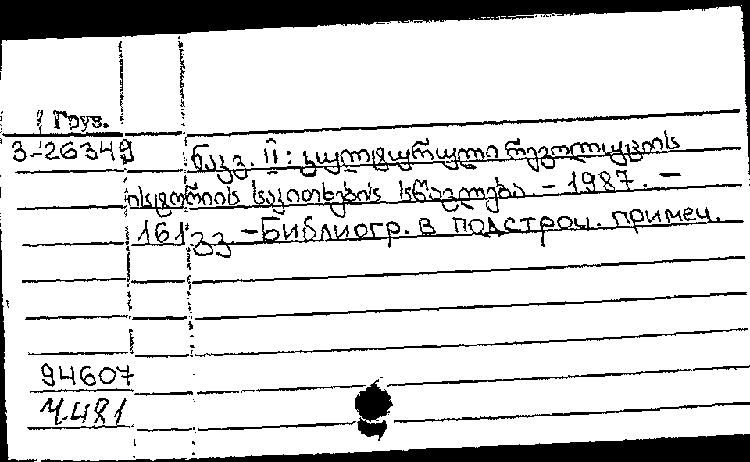 Груз.
3-26349
ნაკვ. II: კულტურული რევოლუციის
ისტორიის საკითხების სწავლება. – 1987. –
161 გვ – Библиогр. в подстроч. примеч.
94607
4.481